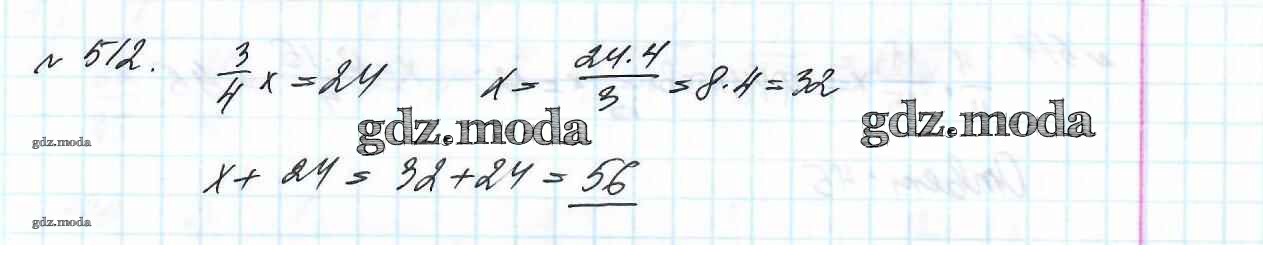 № 512. 3/4 x = 24 x = 24·4/3 = 8·4 = 32
gdz.moda gdz.moda gdz.moda
x + 24 = 32 + 24 = 56
gdz.moda